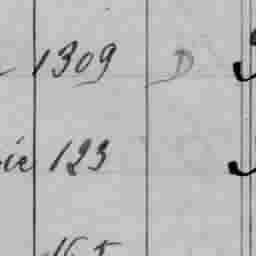 1309 D
ie 123
165